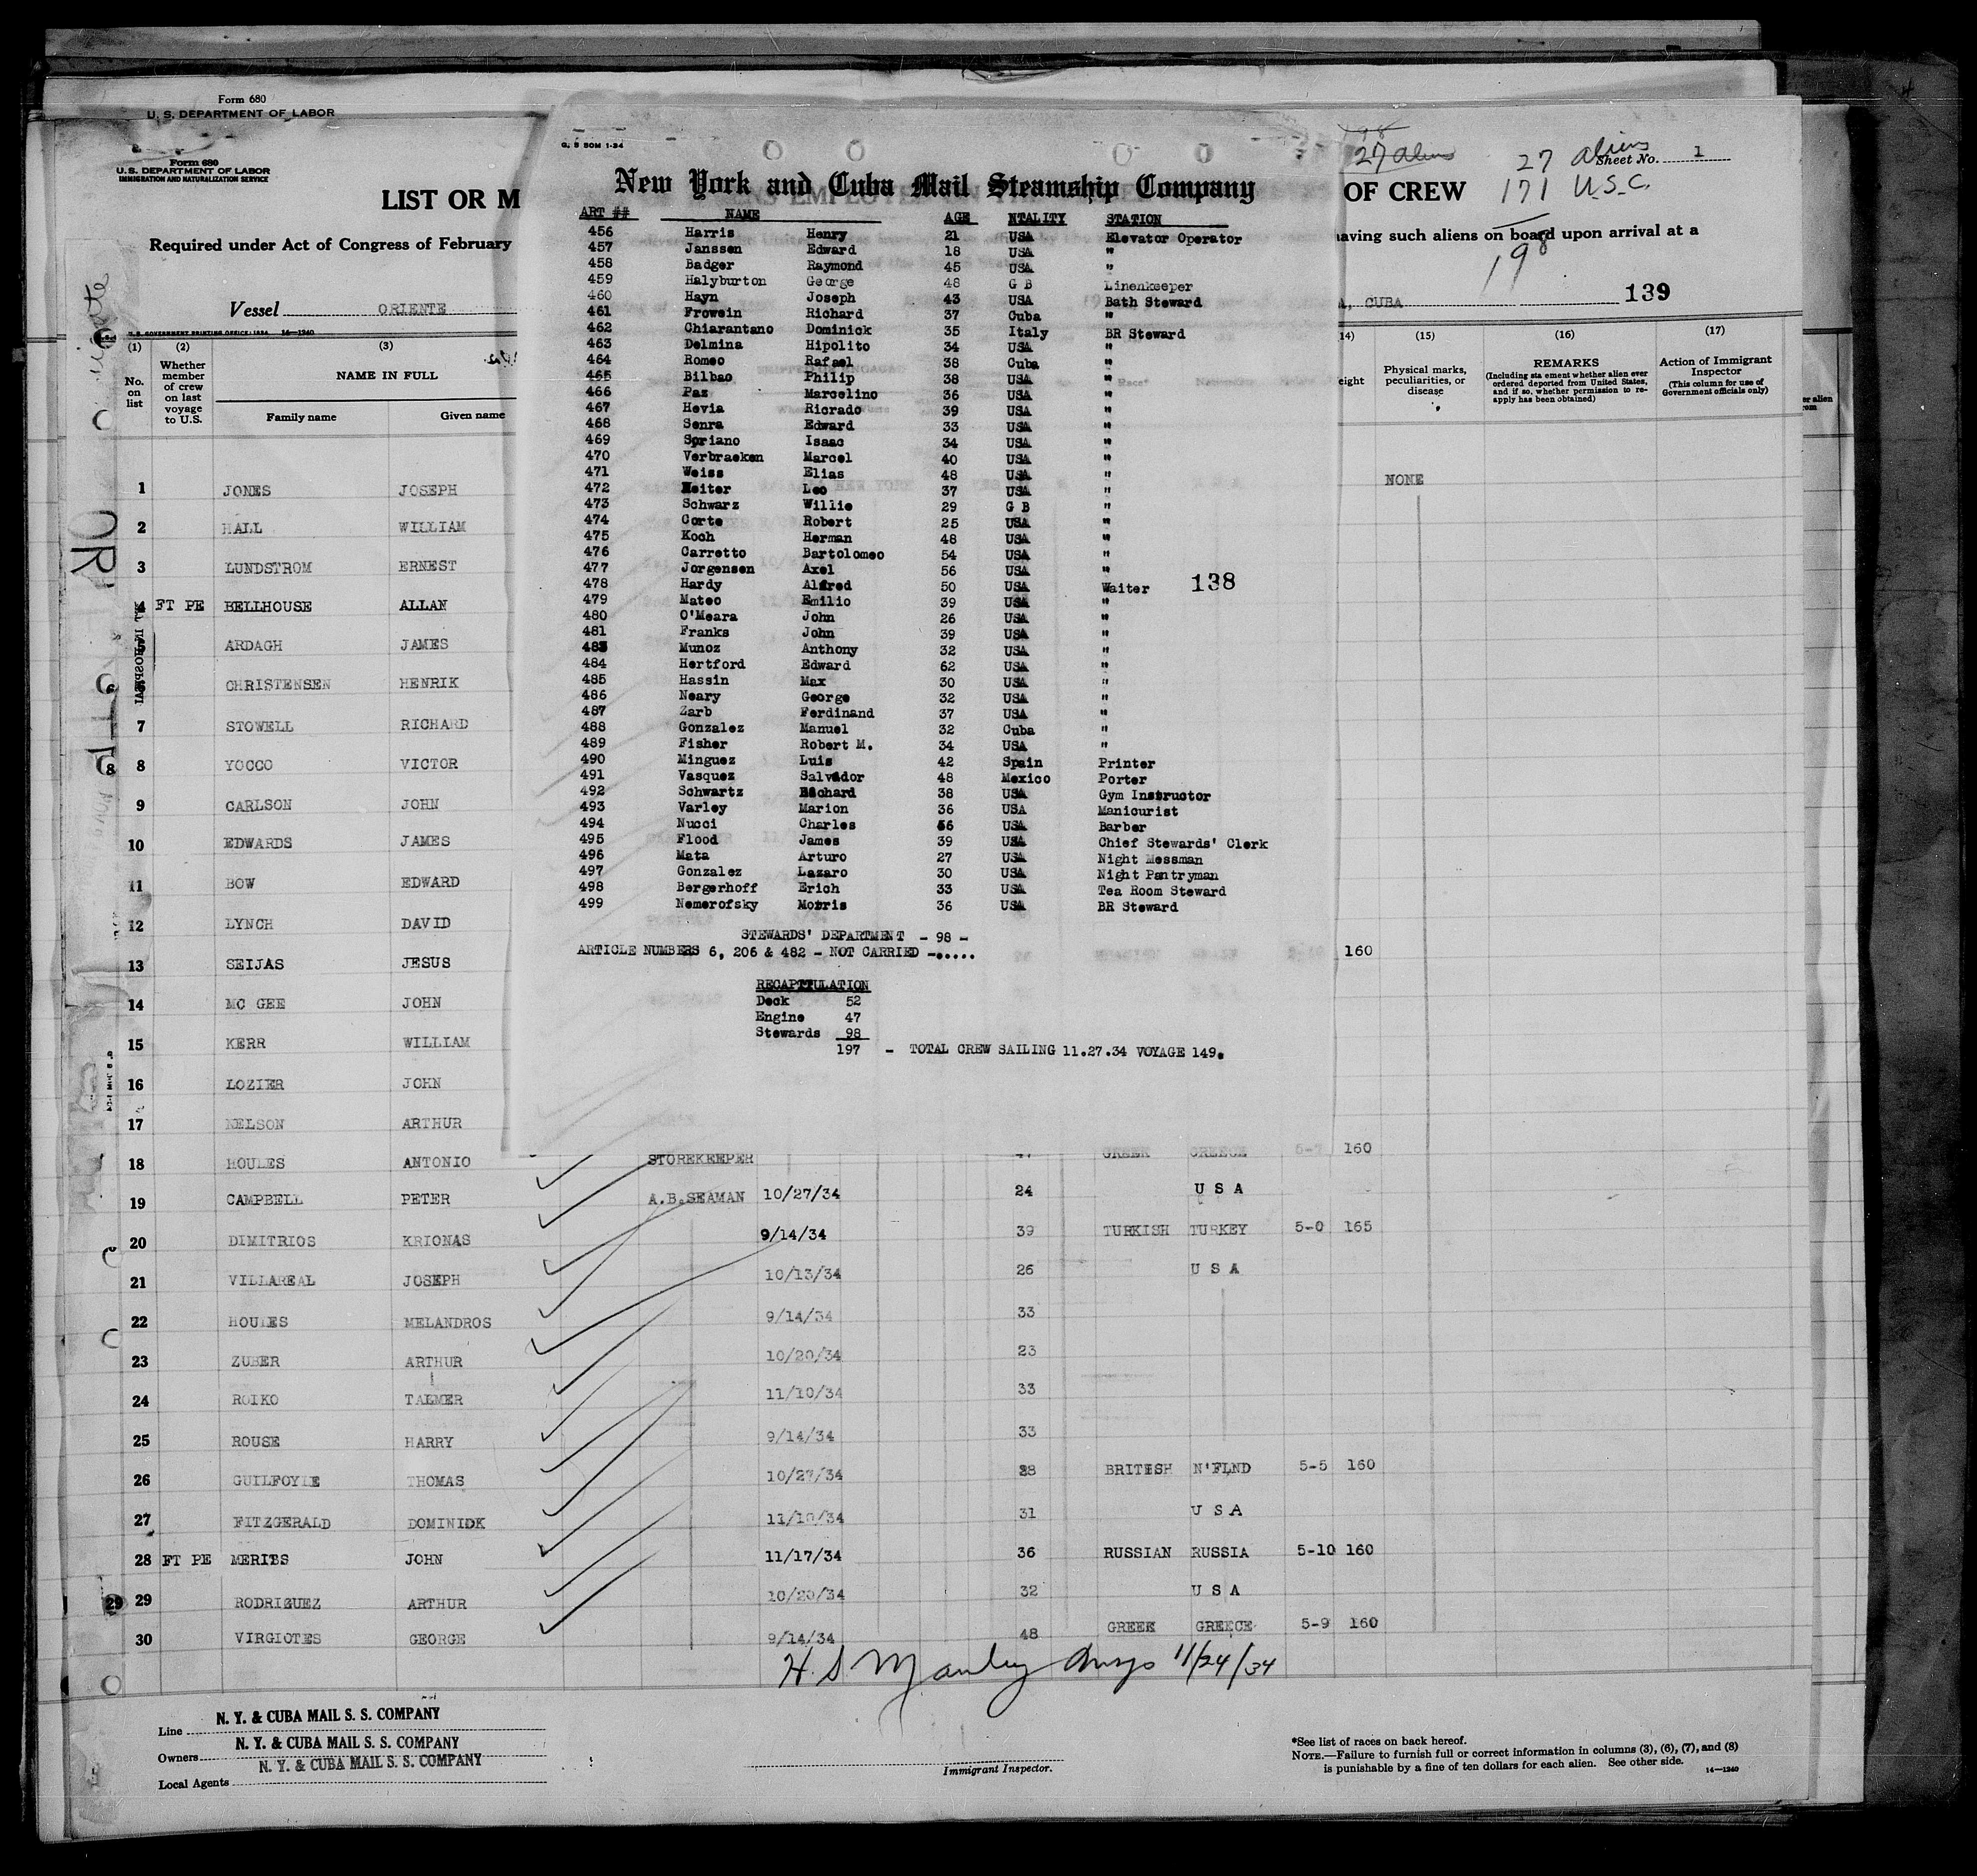 Form 680
U. S. DEPARTMENT OF LABOR
Form 680
U. S. DEPARTMENT OF LABOR
IMMIGRATION AND NATURALIZATION SERVICE
LIST OR M
Required under Act of Congress of February
Vessel ORIENTE
U. S. GOVERNMENT PRINTING OFFICE: 1934 14—1240
27 aliens
27 aliens
Sheet No. 1
OF CREW 171 U.S.C.
having such aliens on board upon arrival at a
198
A, CUBA 139
G. B BOM 1-34
New York and Cuba Mail Steamship Company
ART ## NAME AGE NTALITY STATION
456 Harris Henry 21 USA Elevator Operator
457 Janssen Edward 18 USA "
458 Badger Raymond 45 USA "
459 Halyburton George 48 G B Linenkeeper
460 Hayn Joseph 43 USA Bath Steward
461 Frowein Richard 37 Cuba "
462 Chiarantano Dominick 35 Italy BR Steward
463 Delmina Hipolito 34 USA "
464 Romeo Rafael 38 Cuba "
465 Bilbao Philip 38 USA "
466 Paz Marcelino 36 USA "
467 Hevia Ricrado 39 USA "
468 Senra Edward 33 USA "
469 Soriano Isaac 34 USA "
470 Verbraeken Marcel 40 USA "
471 Weiss Elias 48 USA "
472 Reiter Leo 37 USA "
473 Schwarz Willie 29 G B "
474 Corte Robert 25 USA "
475 Koch Herman 48 USA "
476 Carretto Bartolomeo 54 USA "
477 Jorgensen Axel 56 USA "
478 Hardy Alfred 50 USA Waiter 138
479 Mateo Emilio 39 USA "
480 O'Meara John 26 USA "
481 Franks John 39 USA "
483 Munoz Anthony 32 USA "
484 Hertford Edward 62 USA "
485 Hassin Max 30 USA "
486 Neary George 32 USA "
487 Zarb Ferdinand 37 USA "
488 Gonzalez Manuel 32 Cuba "
489 Fisher Robert M. 34 USA "
490 Minguez Luis 42 Spain Printer
491 Vasquez Salvador 48 Mexico Porter
492 Schwartz Richard 38 USA Gym Instructor
493 Varley Marion 36 USA Manicurist
494 Nucci Charles 56 USA Barber
495 Flood James 39 USA Chief Stewards' Clerk
496 Mata Arturo 27 USA Night Messman
497 Gonzalez Lazaro 30 USA Night Pantryman
498 Bergerhoff Erich 33 USA Tea Room Steward
499 Nemerofsky Morris 36 USA BR Steward
STEWARDS' DEPARTMENT - 98 -
ARTICLE NUMBERS 6, 206 & 482 - NOT CARRIED -.....
RECAPITULATION
Deck 52
Engine 47
Stewards 98
197 - TOTAL CREW SAILING 11.27.34 VOYAGE 149.
(1) (2) (3) 14) (15) (16) (17)
No. on list
Whether member of crew on last voyage to U.S.
NAME IN FULL
Family name Given name
eight
Physical marks, peculiarities, or disease
REMARKS
(Including sta ement whether alien ever ordered deported from United States, and if so, whether permission to re-apply has been obtained)
Action of Immigrant Inspector
(This column for use of Government officials only)
1 JONES JOSEPH NONE
2 HALL WILLIAM
3 LUNDSTROM ERNEST
4 FT PE BELLHOUSE ALLAN
ARDAGH JAMES
CHRISTENSEN HENRIK
7 STOWELL RICHARD
8 YOCCO VICTOR
9 CARLSON JOHN
10 EDWARDS JAMES
11 BOW EDWARD
12 LYNCH DAVID
13 SEIJAS JESUS 160
14 MC GEE JOHN
15 KERR WILLIAM
16 LOZIER JOHN
17 NELSON ARTHUR
18 HOULES ANTONIO STOREKEEPER 47 GREEK GREECE 5-7 160
19 CAMPBELL PETER A.B.SEAMAN 10/27/34 24 U S A
20 DIMITRIOS KRIONAS 9/14/34 39 TURKISH TURKEY 5-0 165
21 VILLAREAL JOSEPH 10/13/34 26 U S A
22 HOULES MELANDROS 9/14/34 33
23 ZUBER ARTHUR 10/20/34 23
24 ROIKO TALMER 11/10/34 33
25 ROUSE HARRY 9/14/34 33
26 GUILFOYLE THOMAS 10/27/34 28 BRITISH N'FLND 5-5 160
27 FITZGERALD DOMINICK 11/10/34 31 U S A
28 FT PE MERITS JOHN 11/17/34 36 RUSSIAN RUSSIA 5-10 160
29 29 RODRIGUEZ ARTHUR 10/20/34 32 U S A
30 VIRGIOTES GEORGE 9/14/34 48 GREEK GREECE 5-9 160
H. S Manley 11/24/34
Line N. Y. & CUBA MAIL S. S. COMPANY
Owners N. Y. & CUBA MAIL S. S. COMPANY
Local Agents N. Y. & CUBA MAIL S. S. COMPANY
Immigrant Inspector.
*See list of races on back hereof.
NOTE.—Failure to furnish full or correct information in columns (3), (6), (7), and (8)
is punishable by a fine of ten dollars for each alien. See other side.
14—1240